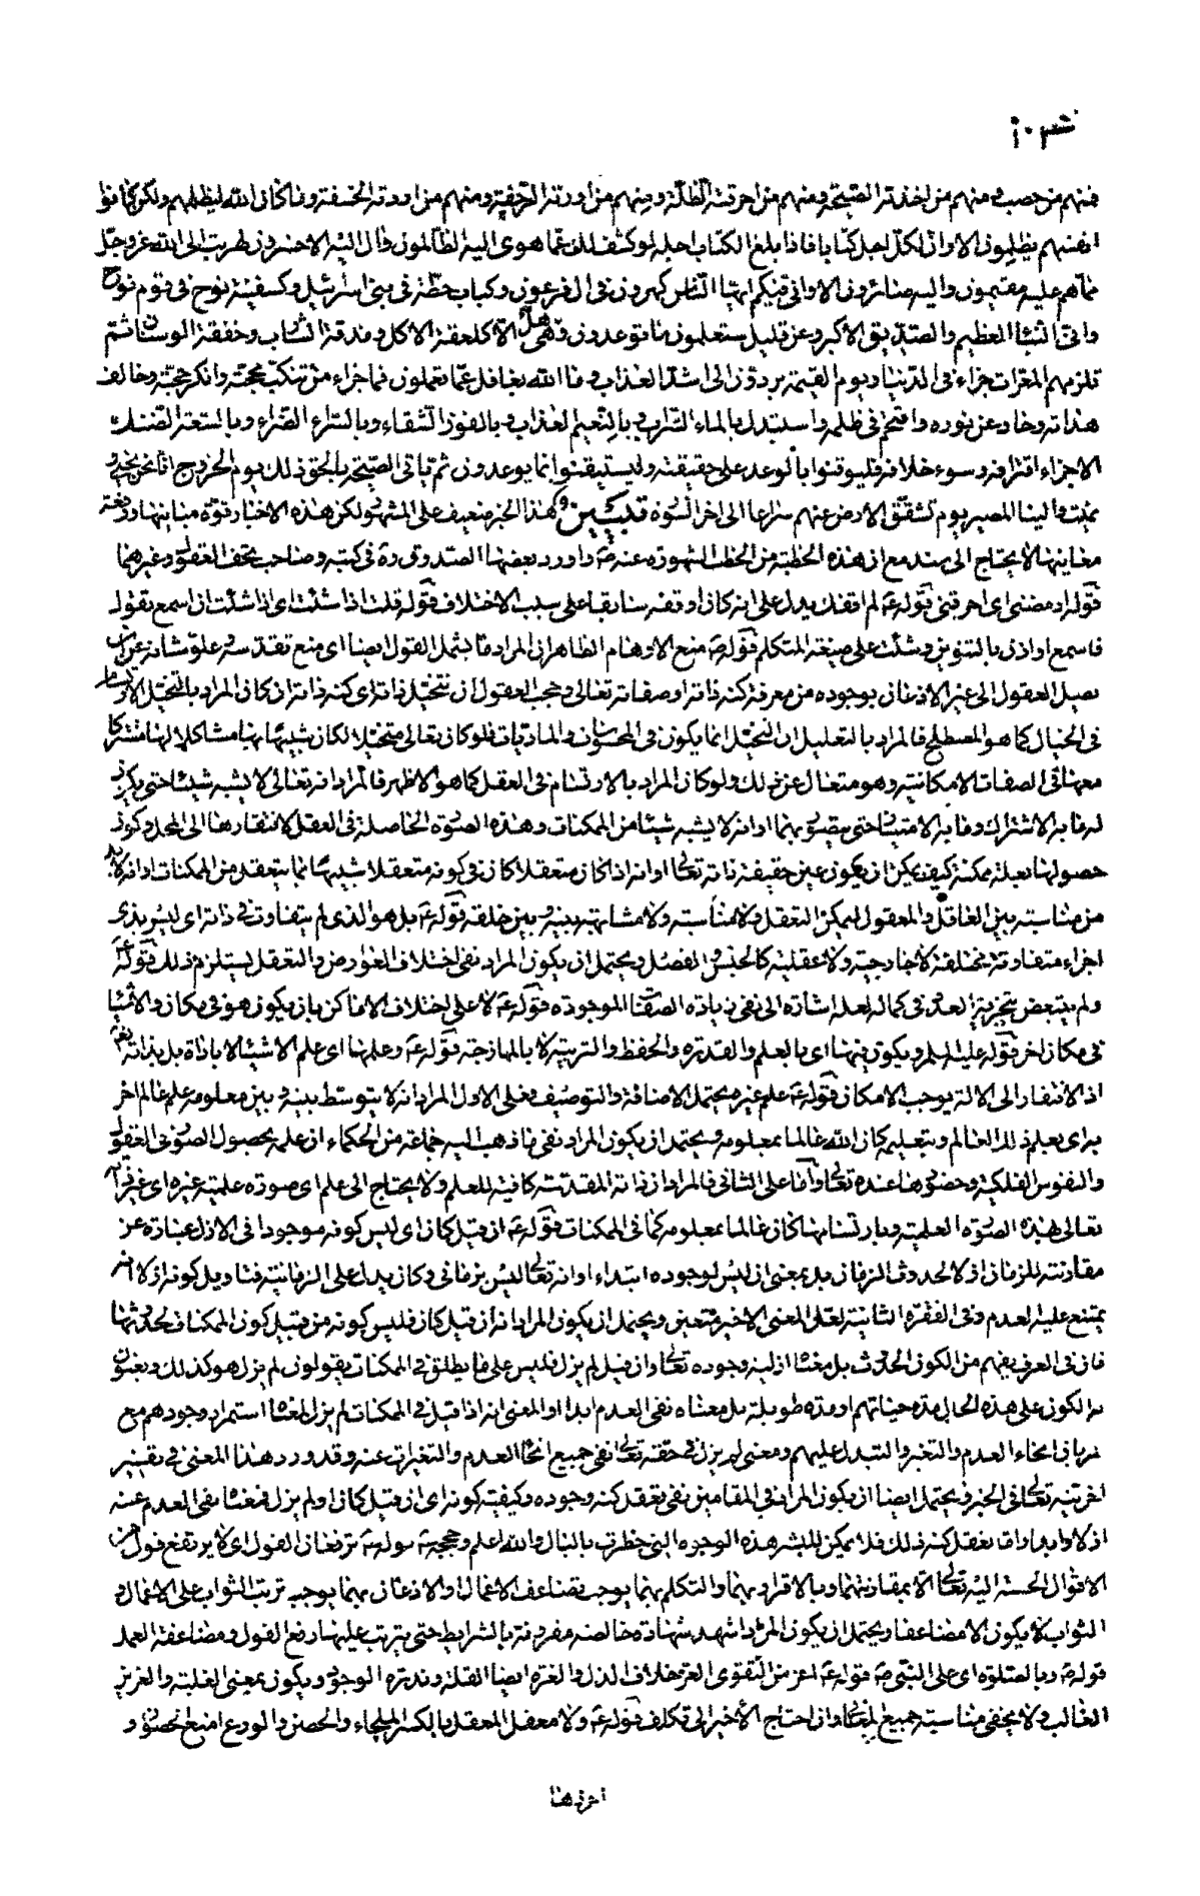 فمنهم من حصب ومنهم من اخذته الصيحة ومنهم من احرقته الظلة ومنهم من اودته الرجفة ومنهم من اردته الخسفة وما كان الله ليظلمهم ولكن كانوا
انفسهم يظلمون الا وان لكل اجل كتابا فاذا بلغ الكتاب اجله لو كشف لك عما هوى اليه الظالمون وآل اليه الاخسرون لهربت الى الله عز وجل
مما هم عليه مقيمون واليه صائرون الا واني فيكم ايها الناس كهرون في ال فرعون وكباب حطة في بني اسرائيل وكسفينة نوح في قوم نوح
واني النبأ العظيم والصديق الاكبر وعن قليل ستعلمون ما توعدون وهل هي الا كلعقة الاكل ومذقة الشارب وخفقة الوسنان ثم
تلزمهم المعرات جزاء في الدنيا ويوم القيمة يردون الى اشد العذاب وما الله بغافل عما تعملون فما جزاء من تنكب محجته وانكر حجته وخالف
هداته وحاد عن نوره واقتحم في ظلمه واستبدل بالماء السراب وبالنعيم العذاب وبالفوز الشقاء وبالسراء الضراء وبالسعة الضنك
الا جزاء اقترافه وسوء خلافه فليوقنوا بالوعد على حقيقته وليستيقنوا بما يوعدون ثم تاتي الصيحة بالحق ذلك يوم الخروج انا نحن نحيي و
نميت والينا المصير يوم تشقق الارض عنهم سراعا الى اخر السورة تبيين وهذا الخبر ضعيف على المشهور لكن هذه الاخبار قوة مبانيها ورفعة
معانيها لا يحتاج الى سند مع ان هذه الخطبة من الخطب المشهورة عنه ع واورد بعضها الصدوق ره في كتبه وصاحب تحف العقول وغيرهما
قوله ارمضني اي احرقني قوله ع لم اقفك يدل على انه كان اوقفه سابقا على سبب الاختلاف قوله قلت اذا شئت اي اذا شئت ان اسمع بقوله
فاسمع او اذن بالتنوين وشئت على صيغة المتكلم قوله ع منع الاوهام الظاهر ان المراد ما يشمل العقول ايضا اي منع تقدسه وعلو شانه عن ان
يصل العقول الى غير الاذعان بوجوده من معرفة كنه ذاته وصفاته تعالى وحجب العقول ان تتخيل ذاته اي كنه ذاته ان كان المراد بالتخيل الارتسام
في الخيال كما هو المصطلح فالمراد بالتعليل ان التخيل انما يكون في المحسوسات والماديات فلو كان تعالى متخيلا لكان شبيها بها مشاكلا لها مشتركا
معها في الصفات الامكانية وهو متعال عن ذلك ولو كان المراد بالارتسام في العقل كما هو الاظهر فالمراد انه تعالى لا يشبه شيئا حتى يكون
له ما به الاشتراك وما به الامتياز حتى يتصور بهما او انه لا يشبه شيئا من الممكنات وهذه الصورة الحاصلة في العقل لافتقارها الى المحل وكون
حصولها بعلة ممكنة كيف يمكن ان يكون عين حقيقة ذاته تعالى او انه اذا كان متعقلا كان في كونه متعقلا شبيها بما يتعقل من الممكنات او انه لا بد
من مناسبة بين العاقل والمعقول ليمكن التعقل ولا مناسبة ولا مشابهة بينه وبين خلقه قوله ع بل هو الذي لم يتفاوت في ذاته اي ليس بذي
اجزاء متفاوتة مختلفة لا خارجية ولا عقلية كالجنس والفصل ويحتمل ان يكون المراد نفي اختلاف العوارض والتعقل يستلزم ذلك قوله ع
ولم يتبعض بتجزية العدد في كماله لعله اشارة الى نفي زيادة الصفات الموجودة قوله ع لا على اختلاف الاماكن بان يكون هو في مكان والاشياء
في مكان اخر قوله عليه السلم ويكون فيها اي بالعلم والقدرة والحفظ والتربية لا بالممازجة قوله ع وعلمها اي علم الاشياء لا باداة بل بذاته
اذ الافتقار الى الالة يوجب الامكان قوله ع علم غيره يحتمل الاضافة والتوصيف فعلى الاول المراد انه لا يتوسط بينه وبين معلومه علم عالم اخر
به اي بعلم ذلك العالم وبتعليمه كان الله عالما بمعلومه ويحتمل ان يكون المراد نفي ما ذهب اليه جماعة من الحكماء ان علمه بحصول الصور في العقول
والنفوس الفلكية وحضورها عنده تعالى واما على الثاني فالمراد ان ذاته المقدسة كافية للعلم ولا يحتاج الى علم اي صورة علمية غيره اي غير ذاته
تعالى بهذه الصورة العلمية وبارتسامها كان عالما بمعلومه كما في الممكنات قوله ع ان قيل كان اي ليس كونه موجودا في الازل عبارة عن
مقارنته للزمان ازلا لحدوث الزمان بل بمعنى ان ليس لوجوده ابتداء او انه تعالى ليس بزماني وكان يدل على الزمانية فتاويل كونه ازلا انه
يمتنع عليه العدم وفي الفقرة الثانية لعل المعنى الاخير متعين ويحتمل ان يكون المراد انه ان قيل كان فليس كونه من قبيل كون الممكنات لحدوثها
فان في العرف يفهم من الكون الحدوث بل معناه ازلية وجوده تعالى وان قيل لم يزل فليس على ما يطلق في الممكنات يقولون لم يزل هو كذلك ويعنون
به الكون على هذه الحال مدة حياتهم او مدة طويلة بل معناه نفي العدم ابدا او المعنى انه اذا قيل في الممكنات لم يزل فمعناه استمرار وجودهم مع
طريان انحاء العدم والتغير والتبدل عليهم ومعنى لم يزل في حقه تعالى نفي جميع انحاء العدم والتغيرات عنه وقد ورد هذا المعنى في تفسير
اخريته تعالى في الخبر ويحتمل ايضا ان يكون المراد في المقامين نفي تعقل كنه وجوده وكيفية كونه اي ان قيل كان او لم يزل فمعناه نفي العدم عنه
ازلا وابدا واما تعقل كنه ذلك فلا يمكن للبشر هذه الوجوه التي خطرت بالبال والله اعلم وحججه ع قوله ع ترفعان القول اي لا يرتفع قول من
الاقوال الحسنة اليه تعالى الا بمقارنتهما وبالاقرار بهما والتكلم بهما يوجب تضاعف الاعمال او الاذعان بهما يوجب ترتب الثواب على الاعمال و
الثواب لا يكون الا مضاعفا ويحتمل ان يكون المراد اشهد شهادة خالصة مقرونة بالشرايط حتى يترتب عليها رفع القول ومضاعفة العمل
قوله ع وبالصلوة اي على النبي ص قوله ع اعز من التقوى العز خلاف الذل والعزة ايضا القلة وندرة الوجود ويكون بمعنى الغلبة والعزيز
الغالب ولا يخفى مناسبة جميع المعاني وان احتاج الاخير الى تكلف قوله ع ولا معقل المعقل بالكسر الملجاء والحصن والورع امنع الحصون و
احرزها